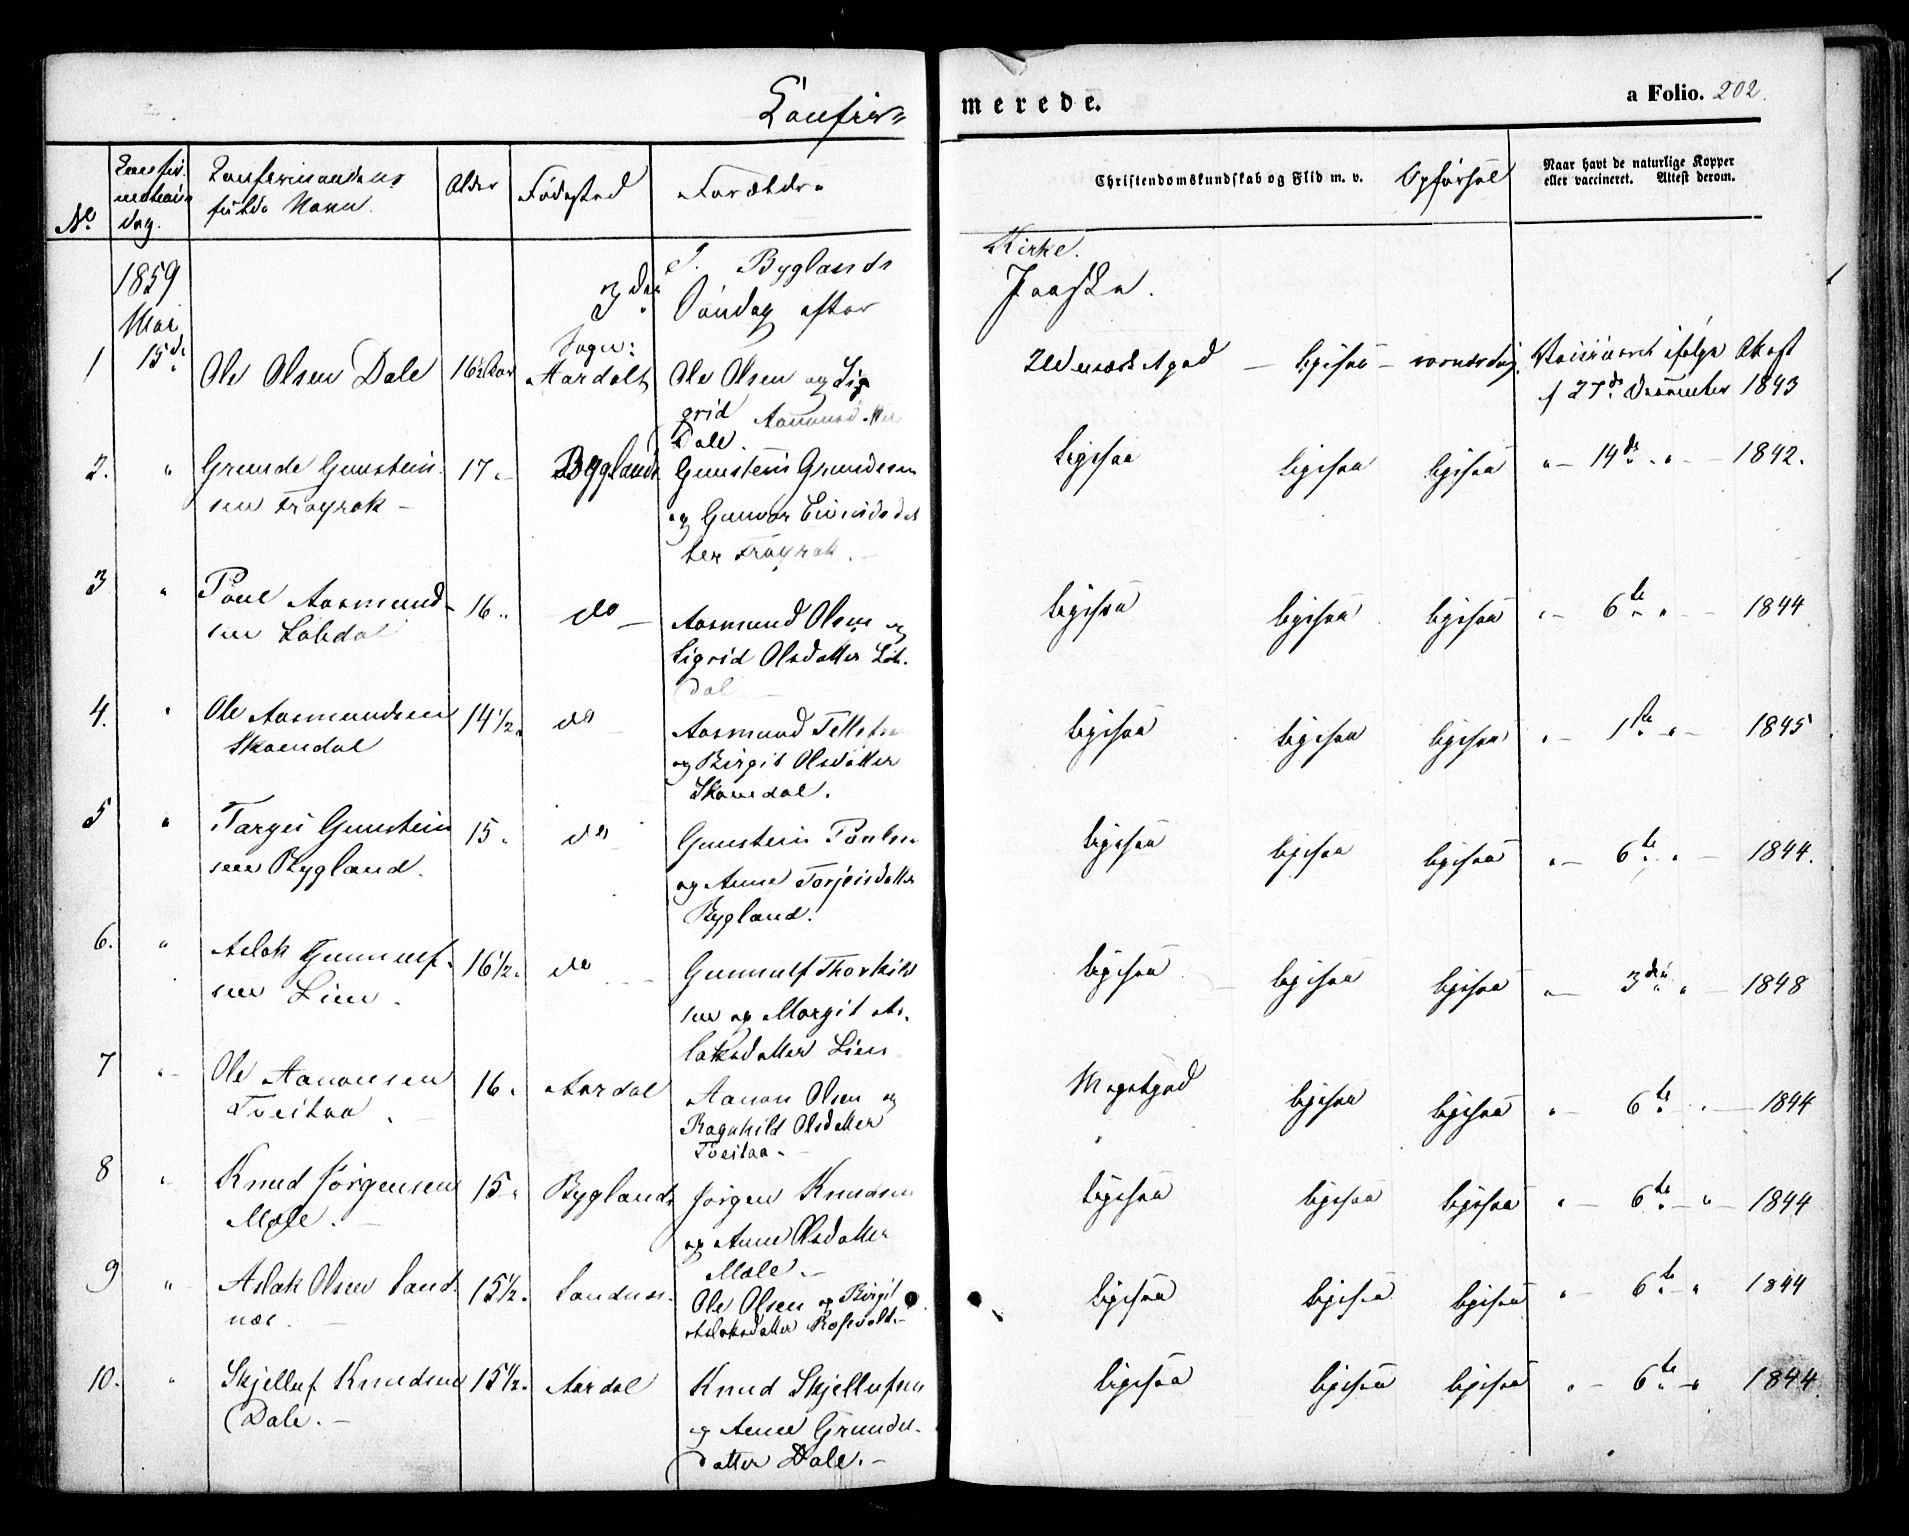 Confir=
merede.
a Folio. 202.
No
Confir-
mations
dag.
Confirmandens
fulde Navn.
Alder
Fødested
Forældre
Christendomskundskab og Flid m. v.
Opførsel
Naar havt de naturlige Kopper
eller vaccineret. Attest derom.
1859
Mai
15de
I Byglands
Kirke.
3die Søndag efter
Paaske.
1
Ole Olsen Dale
16½ Aar
Sogn:
Aardals
Ole Olsen og Sig
grid Aanonsdatter
Dale.
Udmærket god — ligesaa — særdeles
Vaccineret ifølge Attest
af 27de December 1843
2. " Grunde Gunstein-
sen Frøyrak —
17 "
Byglands
Gunstein Grundesen
og Gunvor Eivindsdat
ter Frøyrak. —
ligesaa ligesaa ligesaa " — 14de " " — 1842.
3 " Poul Aasmund-
sen Lobdal
16 "
do —
Aasmund Olsen og
Sigrid Olsdatter Lob-
dal —
ligesaa ligesaa ligesaa " — 6te " — 1844
4. " Ole Aasmundsen
Skomedal
14½.
do
Aasmund Tellefsen
og Birgit Olsdatter
Skomedal.
ligesaa ligesaa ligesaa " — 1ste " — 1845
5 " Tarjei Gunstein
sen Bygland.
15.
do
Gunstein Poulsen
og Anne Torjeisdatter
Bygland.
ligesaa ligesaa ligesaa " — 6te " — 1844.
6. " Aslak Gunnulf-
sen Lien.
16½.
do
Gunnulf Thorkils
sen og Margit As-
laksdatter Lien
ligesaa ligesaa ligesaa " — 3die " — 1848
7 " Ole Aanonsen
Tveitaa
16.
Aardal
Aanon Olsen og
Ragnhild Olsdatter
Tveitaa. —
Meget god ligesaa ligesaa " — 6te " — 1844
8 " Knud Jørgensen
Mole. —
15 "
Byglands
Jørgen Knudsen
og Anne Olsdatter
Mole. —
ligesaa ligesaa ligesaa " — 6te — " — 1844
9 " Aslak Olsen Sand
næs. —
15½.
Sandnæs.
Ole Olsen og Birgit
Aslaksdatter
ligesaa ligesaa ligesaa " — 6te " 1844
10. " Skjelluf Knudsen
Dale. —
15½.
Aardal
Knud Skjellufsen
og Anne Grundes-
datter Dale. —
ligesaa ligesaa ligesaa " — 6te — 1844.